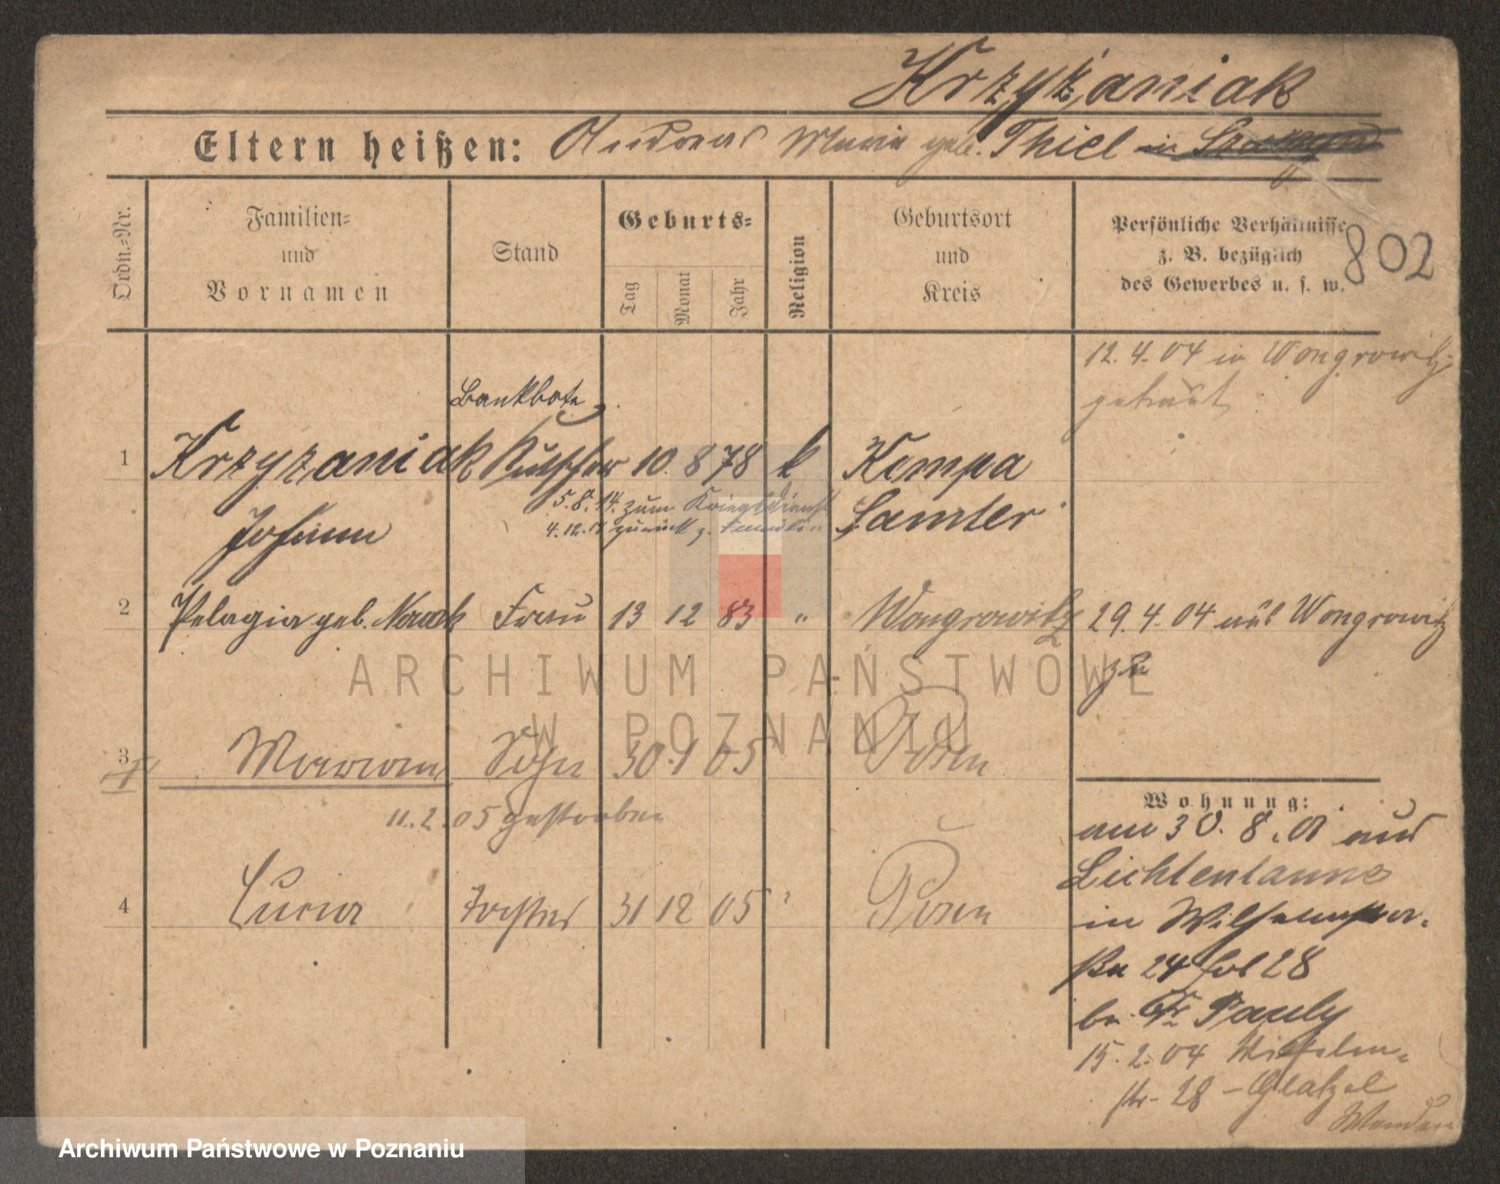 Krzyżaniak
Eltern heißen: Andreas Marie geb. Thiel in
Ordn.=Nr.
Familien=
und
Vornamen
Stand
Geburts=
Tag
Monat
Jahr
Religion
Geburtsort
und
Kreis
Persönliche Verhältnisse
z. B. bezüglich
des Gewerbes u. s. w.
802
12.4.04 in Wongrowitz
getraut
Bankbote
1 Krzyzaniak Kutscher 10. 8 78 k Kempa
5.8.14. zum Kriegsdienst
Johann Samter
4.12.18 zurück z. Familie
2 Pelagia geb. Nowak Frau 13 12 83 " Wongrowitz 29.4.04 aus Wongrowitz
zu
ARCHIWUM PAŃSTWOWE
W POZNANIU
3 Marian Sohn 30 1 05 Posen
11.2.05 gestorben
4 Lucia Tochter 31 12 05 Posen
Wohnung:
am 30.8.01 aus
Lichtentanne
in Wilhelmstra=
ße 24 Hof 28
bei Fr Pauly
15.2.04 Wilhelm=
str. 28 - Glatzel
Wenden
Archiwum Państwowe w Poznaniu